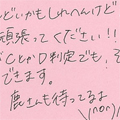 どいかもしれへんけど
頑張ってください!!
ことかD判定でも、そ
できます。
鹿さんも待ってるよ
\(^o^)/